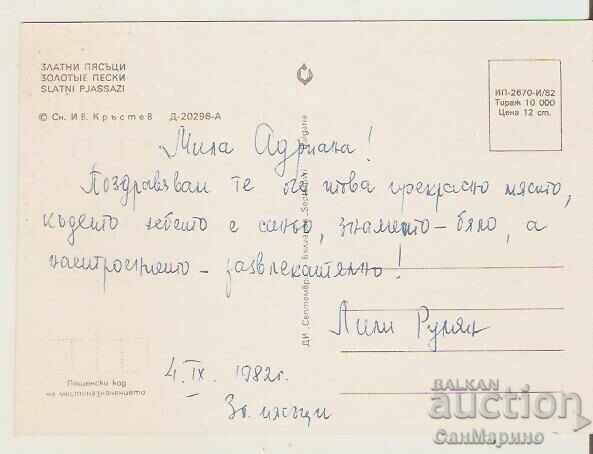 ЗЛАТНИ ПЯСЪЦИ
ЗОЛОТЫЕ ПЕСКИ
SLATNI PJASSAZI
© Сн. И в. Кръстев Д-20296-А
ИП-2670-И/82
Тираж 10 000
Цена 12 ст.
Мила Адриана!
Поздравявам те от това прекрасно място,
където небето е синьо, знамето - бяло, а
настроението - завлекателно!
Лили Румян
4. IX. 1982 г.
Зл. пясъци
Пощенски код
на местоназначението
ДИ „Септември", България
BALKAN
auction
СанМарино